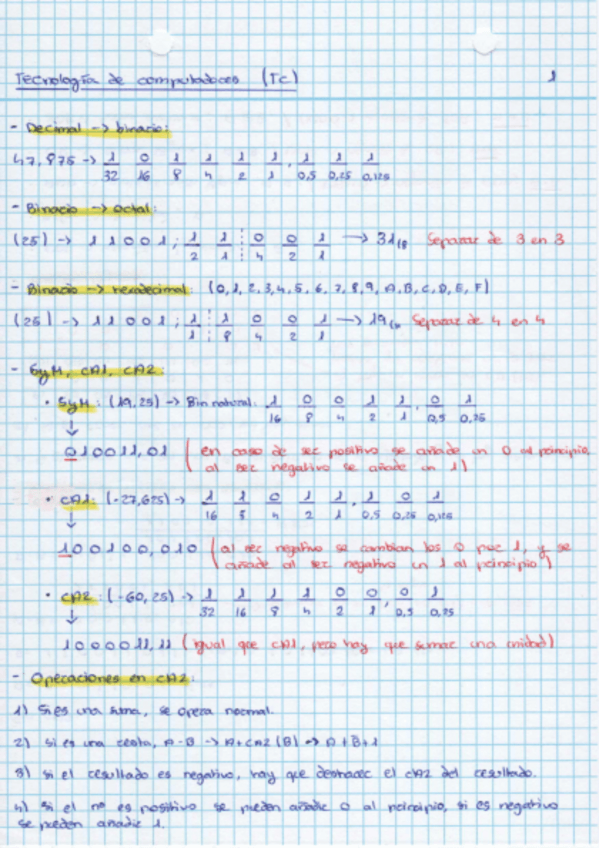 Tecnología de computadores (TC) 1
- Decimal -> binario:
47,875 -> 1 0 1 1 1 1 , 1 1 1
32 16 8 4 2 1 0,5 0,25 0,125
- Binario -> octal:
(25) -> 1 1 0 0 1 ; 1 1 0 0 1 -> 31(8 Separar de 3 en 3
2 1 4 2 1
- Binario -> hexadecimal: (0,1,2,3,4,5,6,7,8,9,A,B,C,D,E,F)
(25) -> 1 1 0 0 1 ; 1 1 0 0 1 -> 19(H Separar de 4 en 4
1 8 4 2 1
- SyM, CA1, CA2:
• SyM: (19,25) -> Bin natural: 1 0 0 1 1 , 0 1
16 8 4 2 1 0,5 0,25
↓
010011,01 (en caso de ser positivo se añade un 0 al principio,
al ser negativo se añade un 1)
• CA1: (-27,625) -> 1 1 0 1 1 , 1 0 1
16 8 4 2 1 0,5 0,25 0,125
↓
100100,010 (al ser negativo se cambian los 0 por 1, y se
añade al ser negativo un 1 al principio)
• CA2: (-60,25) -> 1 1 1 1 0 0 , 0 1
32 16 8 4 2 1 0,5 0,25
↓
1000011,11 (igual que CA1, pero hay que sumar una unidad)
- Operaciones en CA2:
1) Si es una suma, se opera normal.
2) Si es una resta, A-B -> A+CA2(B) => A+B̄+1
3) Si el resultado es negativo, hay que deshacer el CA2 del resultado.
4) Si el nº es positivo se pueden añadir 0 al principio, si es negativo
se pueden añadir 1.